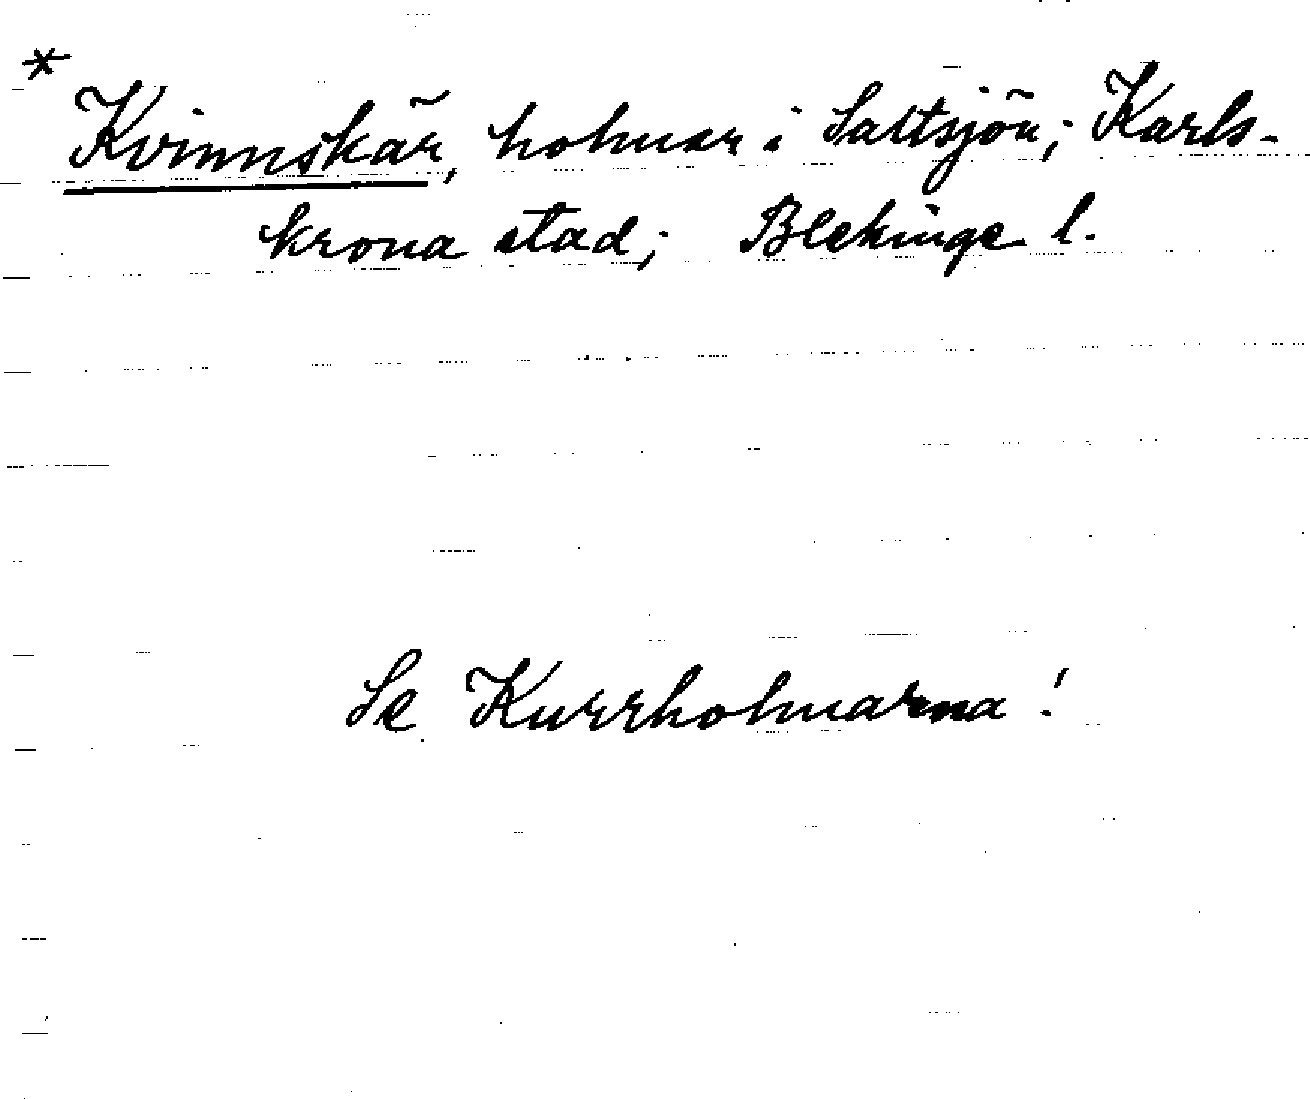 * Kvinnskär, holmar i Saltsjön; Karls-
krona stad; Blekinge l.
Se Kurrholmarna!